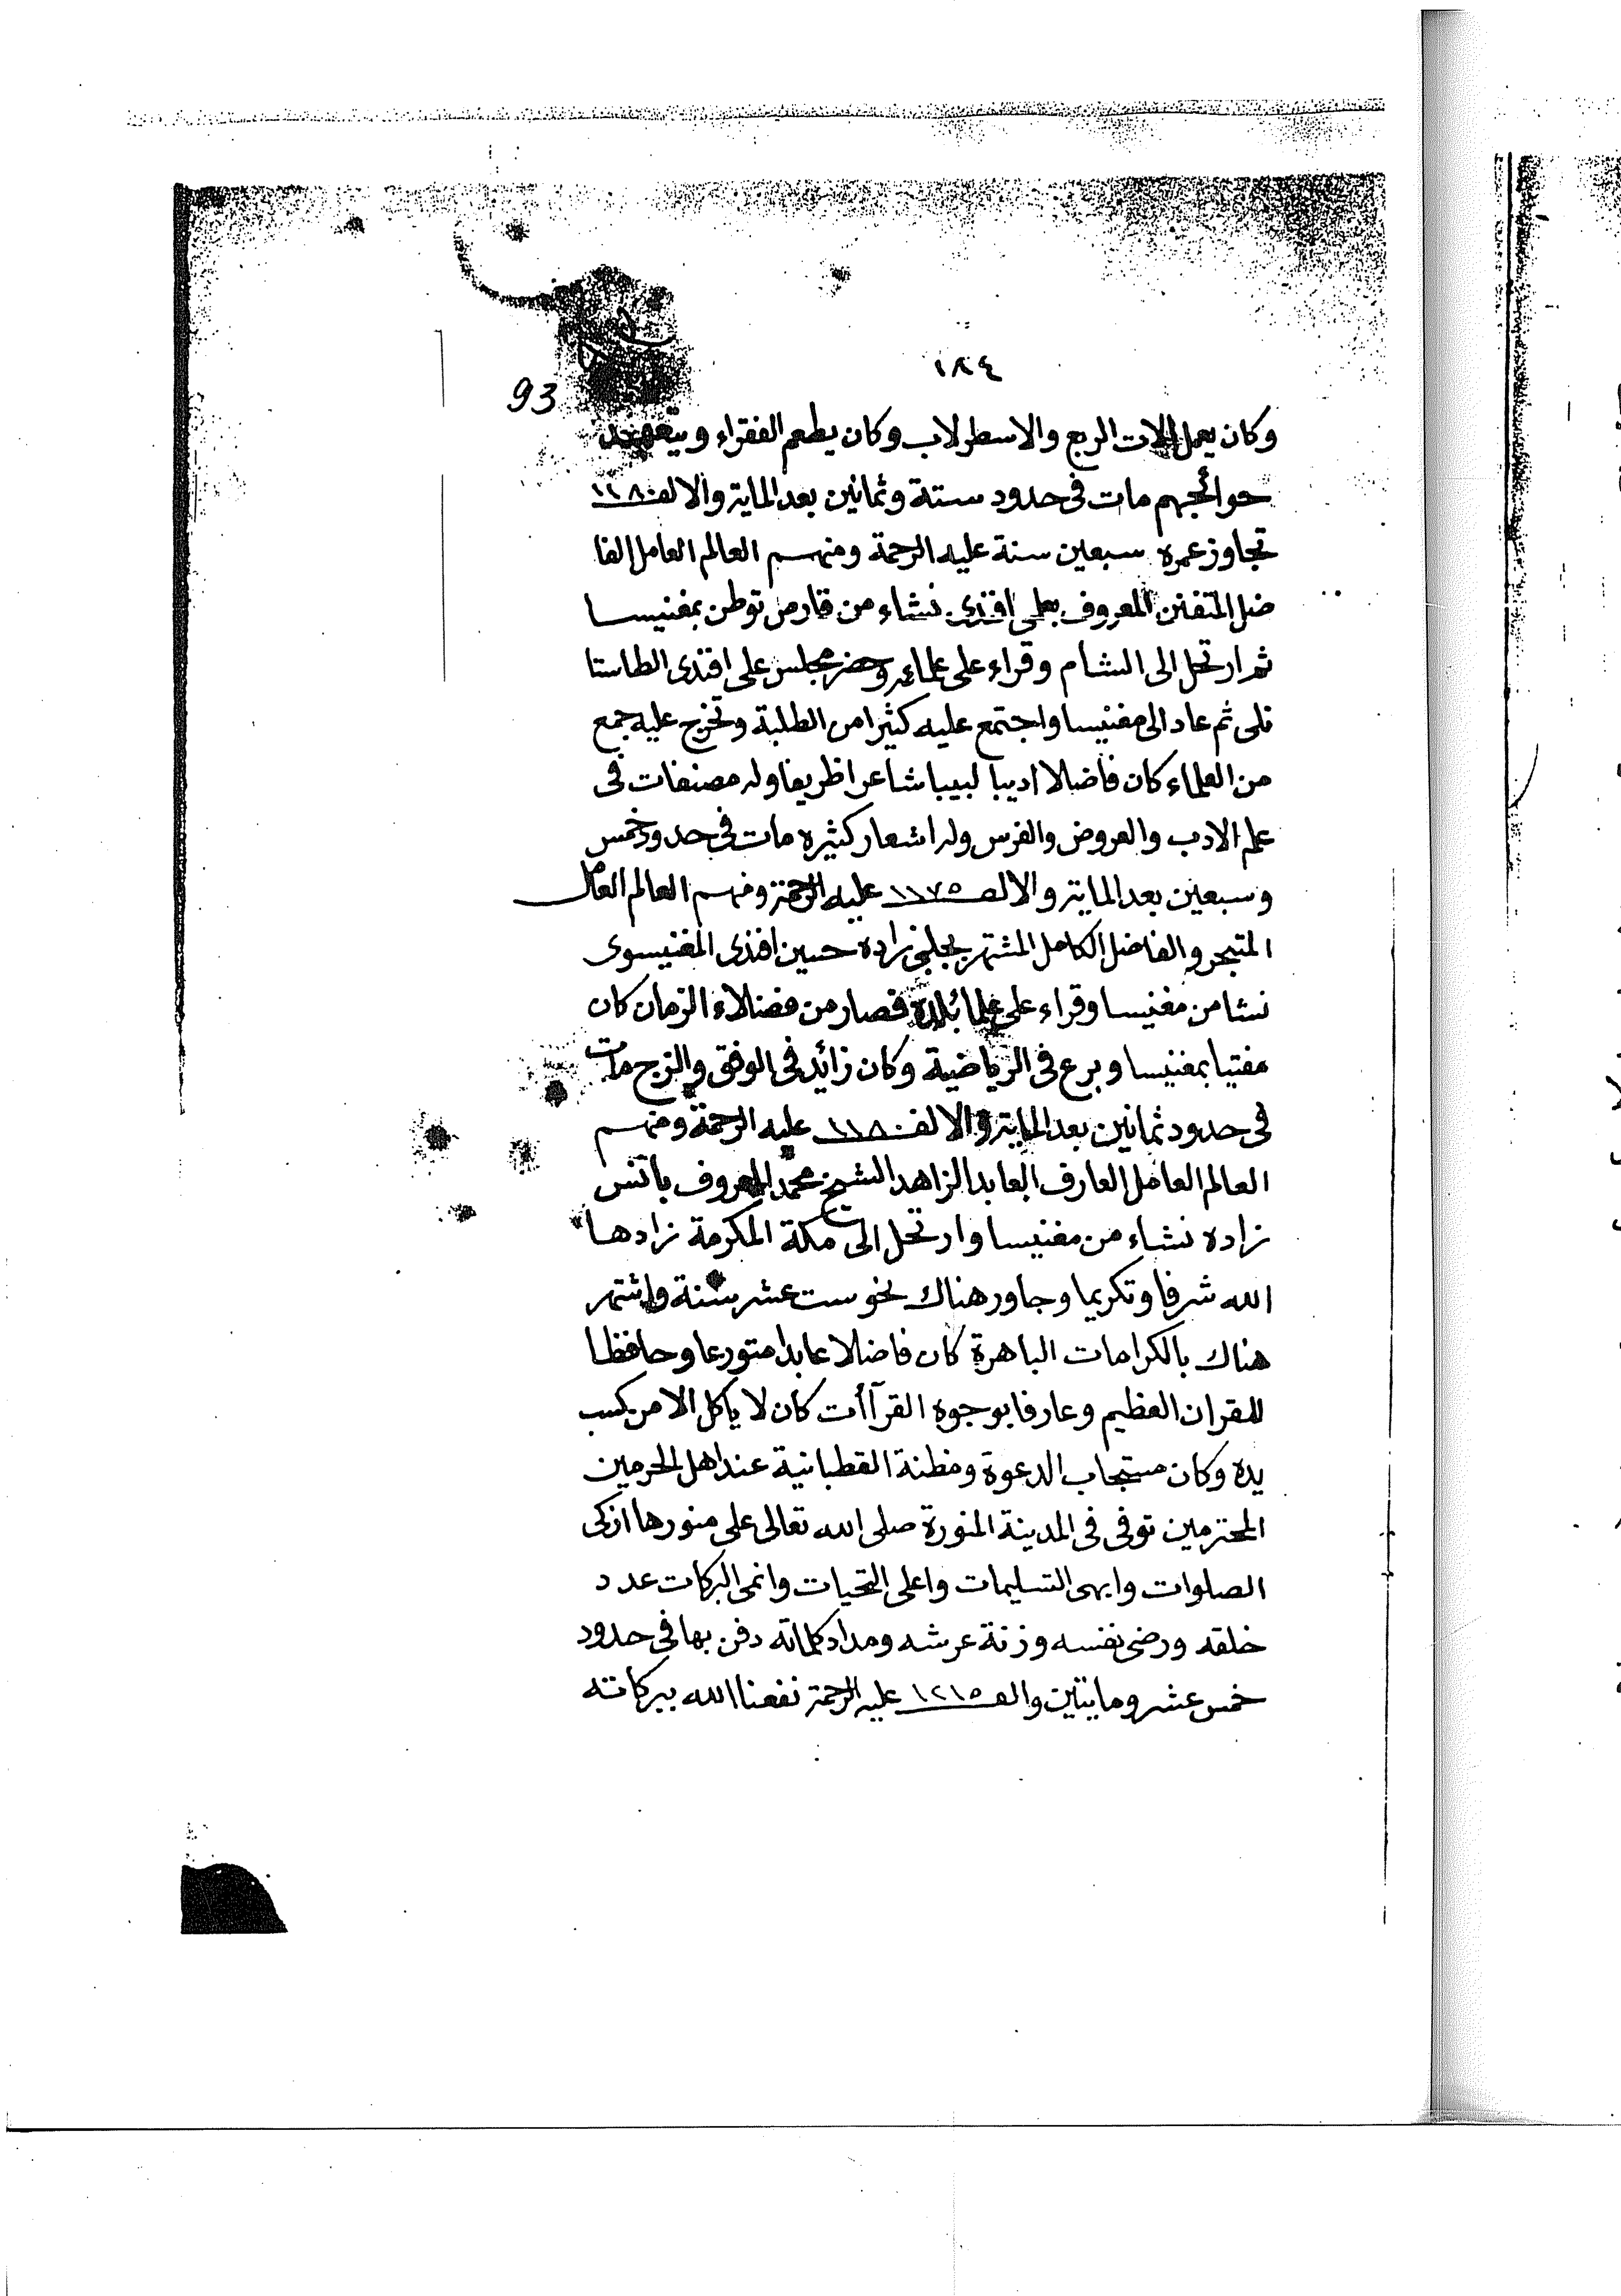 ١٨٤
93
وكان يعمل الات الربع والاسطرلاب وكان يطعم الفقراء ويتعهد
حوائجهم مات فى حدود ستة وثمانين بعد الماية والالف
تجاوز عمره سبعين سنة عليه الرحمة ومنهم العالم العامل الفا
ضل المتفنن المعروف بعلى افندى نشاء من قارص توطن بمغنيسا
ثم ارتحل الى الشام وقراء على علمائه وحضر مجلس على افندى الطاستا
نلى ثم عاد الى مغنيسا واجتمع عليه كثيرا من الطلبة وتخرج عليه جمع
من العلماء كان فاضلا اديبا لبيبا شاعرا ظريفا وله مصنفات فى
علم الادب والعروض والفرس وله اشعار كثيره مات فى حدود خمس
وسبعين بعد الماية والالف ١١٧٥ عليه الرحمة ومنهم العالم العامل
المتبحر والفاضل الكامل المشتهر بچلبى زاده حسين افندى المغنيسوى
نشا من مغنيسا وقراء على علما بلده فصار من فضلاء الزمان كان
مفتيا بمغنيسا وبرع فى الرياضية وكان زائد فى الوفق والزيج مات
فى حدود ثمانين بعد الماية والالف ١١٨٠ عليه الرحمة ومنهم
العالم العامل العارف العابد الزاهد الشيخ محمد المعروف باتش
زاده نشاء من مغنيسا وارتحل الى مكة المكرمة زادها
الله شرفا وتكريما وجاور هناك نحو ست عشر سنة واشتهر
هناك بالكرامات الباهرة كان فاضلا عابدا متورعا وحافظا
للقران العظيم وعارفا بوجوه القرآأت كان لا ياكل الا من كسب
يده وكان مستجاب الدعوة ومظنة القطبانية عند اهل الحرمين
المحترمين توفى فى المدينة المنورة صلى الله تعالى على منورها ازكى
الصلوات وابهى التسليمات واعلى التحيات وانمى البركات عدد
خلقه ورضى نفسه وزنة عرشه ومداد كلماته دفن بها فى حدود
خمس عشر ومايتين والف ١٢١٥ عليه الرحمة نفعنا الله ببركاته